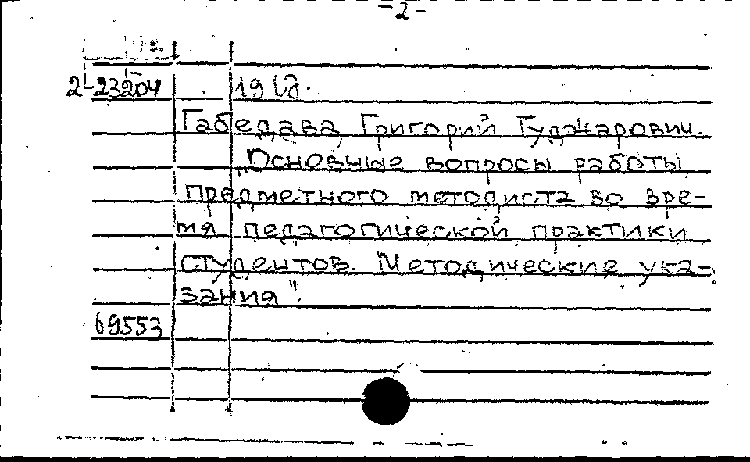 -2-
2-23204
Габедава Григорий Гуджарович.
„Основные вопросы работы
предметного методиста во вре-
мя педагогической практики
студентов. Методические ука-
зания".
69553